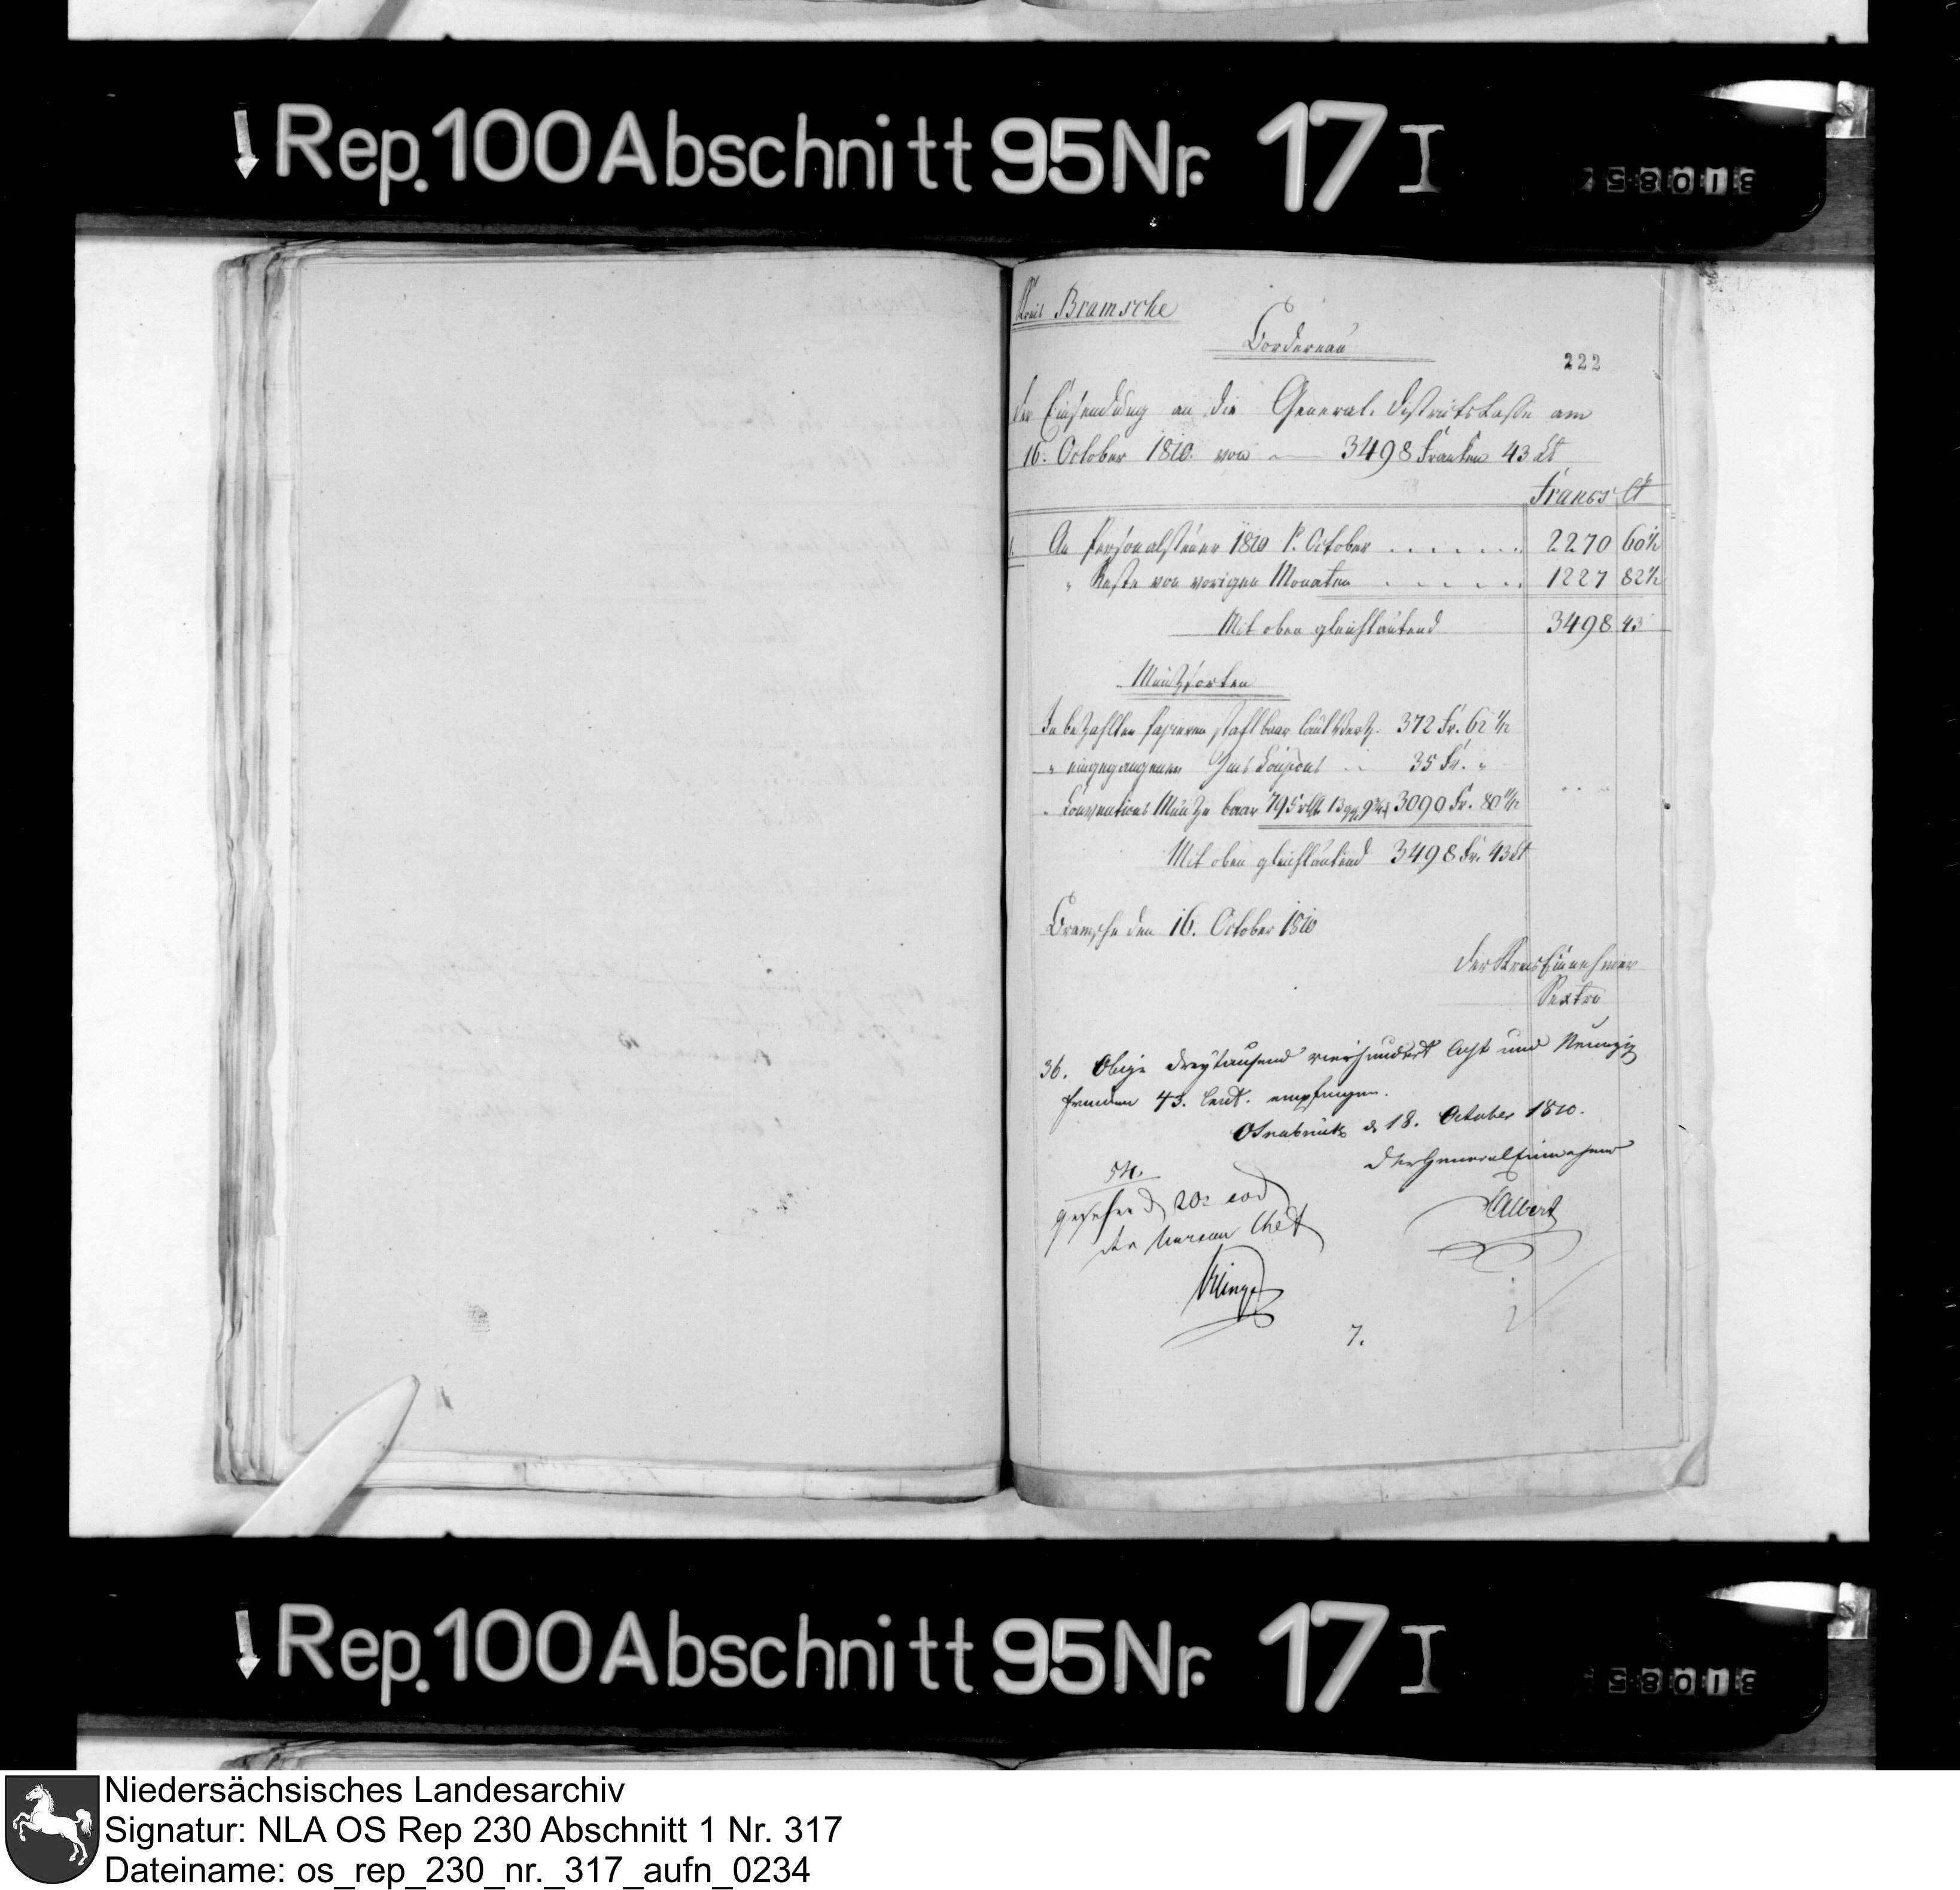 Rep. 100 Abschnitt 95 Nr. 17 I
Kreis Bramsche
Bordereau
222
der Einsendung an die General-Districtskasse am
16. October 1810. von 3498 Franken 43 Ct
Francs Ct
1. An Personalsteuer 1810 pr. October . . . . . . . 2270 60½
" Reste von vorigen Monaten . . . . . . 1227 82½
Mit oben gleichlautend 3498 43
Müntzsorten
In bezahlten Papieren 372 Fr. 62½
" eingegangenen Zins Coupons 35 Fr. "
" Conventions Müntze baar 795 rthlr 13 ggr 9 3090 Fr. 80½
Mit oben gleichlautend 3498 Fr. 43 Ct
Bramsche den 16. October 1810
Der Kreis Einnehmer
Rextro
36. Obige dreytausend vierhundert Acht und Neunzig
Franken 43. Cent. empfangen.
Osnabrück d. 18. October 1810.
Der General Einnehmer
Albert
54.
gesehen d. 20. eod
der Bureau Chef
Klinge
7.
Rep. 100 Abschnitt 95 Nr. 17 I
Niedersächsisches Landesarchiv
Signatur: NLA OS Rep 230 Abschnitt 1 Nr. 317
Dateiname: os_rep_230_nr._317_aufn_0234